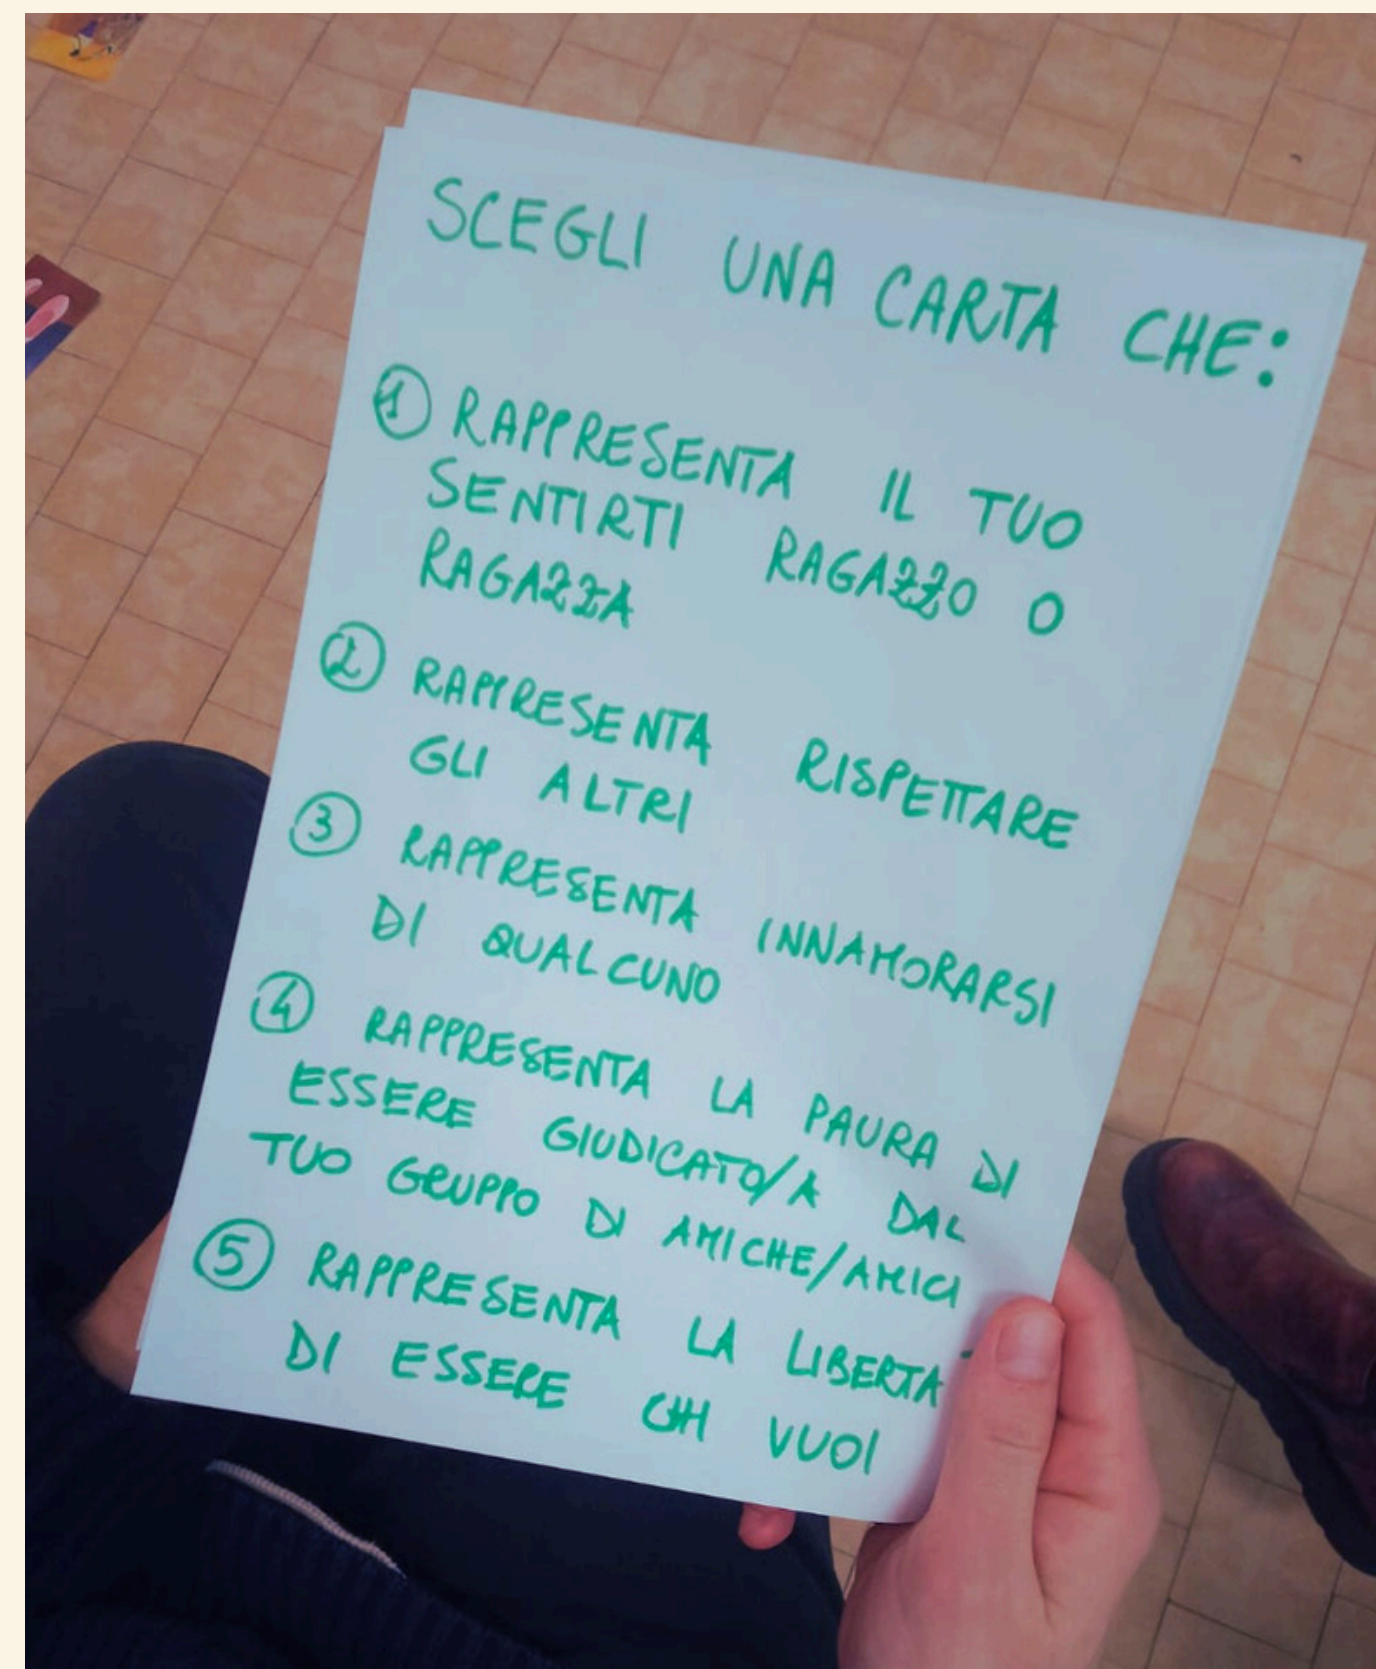 SCEGLI UNA CARTA CHE:
① RAPPRESENTA IL TUO
SENTIRTI RAGAZZO O
RAGAZZA
② RAPPRESENTA RISPETTARE
GLI ALTRI
③ RAPPRESENTA INNAMORARSI
DI QUALCUNO
④ RAPPRESENTA LA PAURA DI
ESSERE GIUDICATO/A DAL
TUO GRUPPO DI AMICHE/AMICI
⑤ RAPPRESENTA LA LIBERTA'
DI ESSERE CHI VUOI